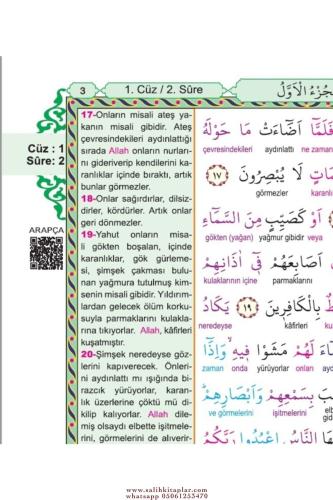 3
1. Cüz / 2. Sûre
الْجُزْءُ الْاَوَّلُ
Cüz : 1
Sûre: 2
ARAPÇA
17-Onların misali ateş ya-
kanın misali gibidir. Ateş
çevresindekileri aydınlattığı
sırada Allah onların nurları-
nı gideriverip kendilerini ka-
ranlıklar içinde bıraktı, artık
bunlar görmezler.
18-Onlar sağırdırlar, dilsiz-
dirler, kördürler. Artık onlar
geri dönmezler.
19-Yahut onların misa-
li gökten boşalan, içinde
karanlıklar, gök gürleme-
si, şimşek çakması bulu-
nan yağmura tutulmuş kim-
senin misali gibidir. Yıldırım-
lardan gelecek ölüm korku-
suyla parmaklarını kulakla-
rına tıkıyorlar. Allah, kâfirleri
kuşatmıştır.
20-Şimşek neredeyse göz-
lerini kapıverecek. Önleri-
ni aydınlattı mı ışığında bi-
razcık yürüyorlar, karan-
lık üzerlerine çöktü mü di-
kilip kalıyorlar. Allah dile-
miş olsaydı elbette işitmele-
rini, görmelerini de alıverir-
فَلَمَّٓا اَضَٓاءَتْ مَا حَوْلَهُ
çevresindekileri aydınlattı ne zaman
لَا يُبْصِرُونَ ﴿١٧﴾
görmezler
اَوْ كَصَيِّبٍ مِنَ السَّمَٓاءِ
gökten (yağan) yağmur gibidir veya
اَصَابِعَهُمْ ف۪ٓي اٰذَانِهِمْ
kulaklarının içine parmaklarını
بِالْكَافِر۪ينَ ﴿١٩﴾ يَكَادُ
neredeyse kâfirleri
لَهُمْ مَشَوْا ف۪يهِ وَاِذَٓا
zaman onda yürüyorlar onları
بِسَمْعِهِمْ وَاَبْصَارِهِمْ
ve görmelerini işitmelerini
النَّاسُ اعْبُدُوا رَبَّكُمُ
www.salihkitaplar.com
whatsapp 05061253470